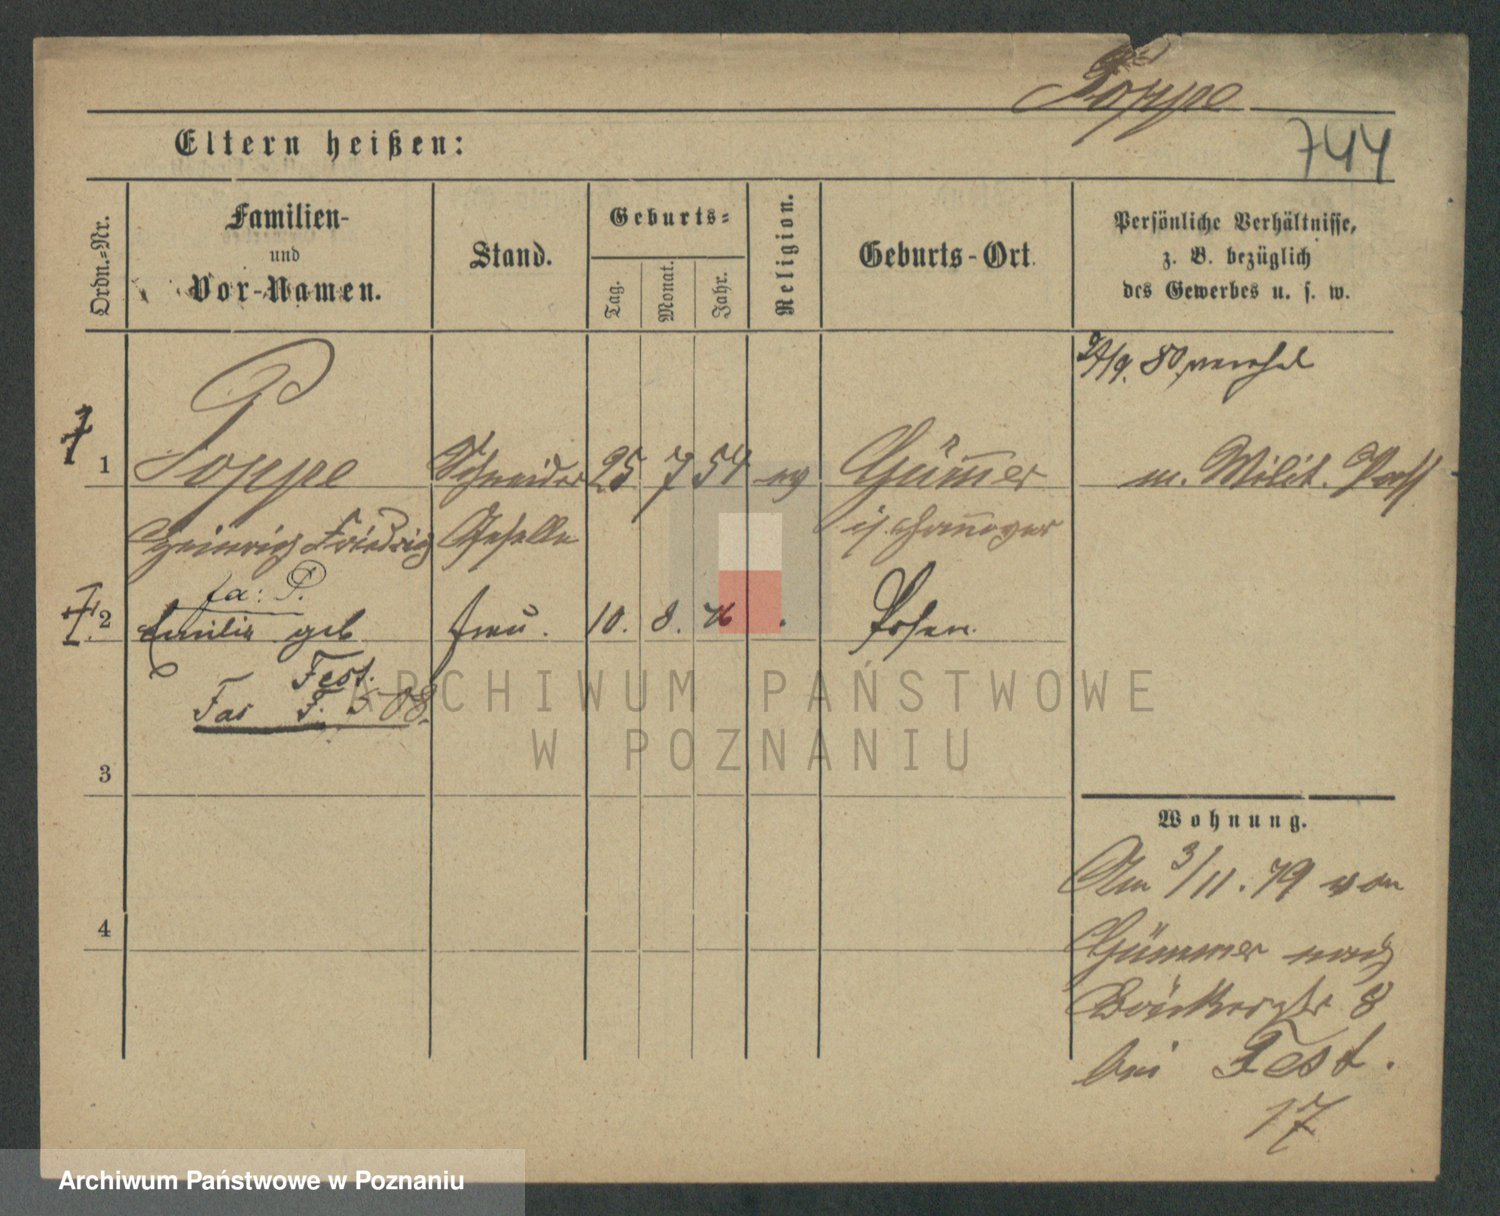 Poppe
744
Eltern heißen:
Ordn.-Nr.
Familien-
und
Vor-Namen.
Stand.
Geburts-
Tag.
Monat.
Jahr.
Religion.
Geburts-Ort.
Persönliche Verhältnisse,
z. B. bezüglich
des Gewerbes u. s. w.
1 Poppe Schneider 25 7 54 ev Gümmer m. Milit. Paß
Heinrich Friedrich Geselle i/ Hannover
2 Emilie geb Frau. 10. 8. Posen.
Fest.
Fas F. 508.
3
4
Wohnung.
Am 3/11. 79 von
Gümmer nach
Bäckerstr 8
bei Fest.
17
ARCHIWUM PAŃSTWOWE
W POZNANIU
Archiwum Państwowe w Poznaniu